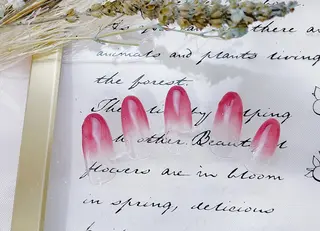 As you are there a
animals and plants living
the forest.
The ping
h other. Beaut
flowers are in bloom
in spring, delicious